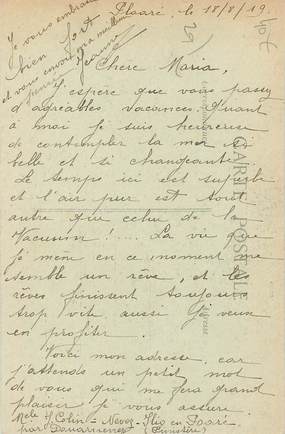 Plaaré, le 18/8/19.
Je vous embrasse
bien fort
et vous envoie ma meilleure
pensée Jeanne
Chère Maria,
J'espère que vous passez
d'agréables vacances. Quant
à moi je suis heureuse
de contempler la mer si
belle et si changeante.
Le temps ici est superbe
et l'air pur est tout
autre que celui de la
! .... La vie que
je mène en ce moment me
semble un rêve, et les
rêves finissent toujours
trop vite aussi j'en veux
en profiter.
Voici mon adresse, car
j'attends un petit mot
de vous qui me fera grand
plaisir je vous assure.
Melle H. Colin = Nevez = en
par Douarnenez (Finistère)
CARTE POSTALE
Adresse